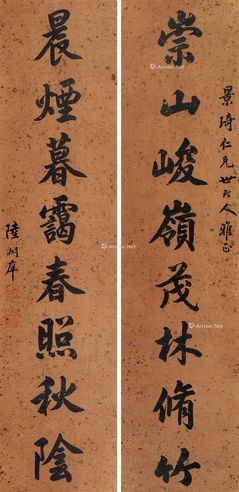 景琦仁兄世大人雅正
崇山峻嶺茂林脩竹
晨煙暮靄春照秋陰
陸潤庠
Artron.Net